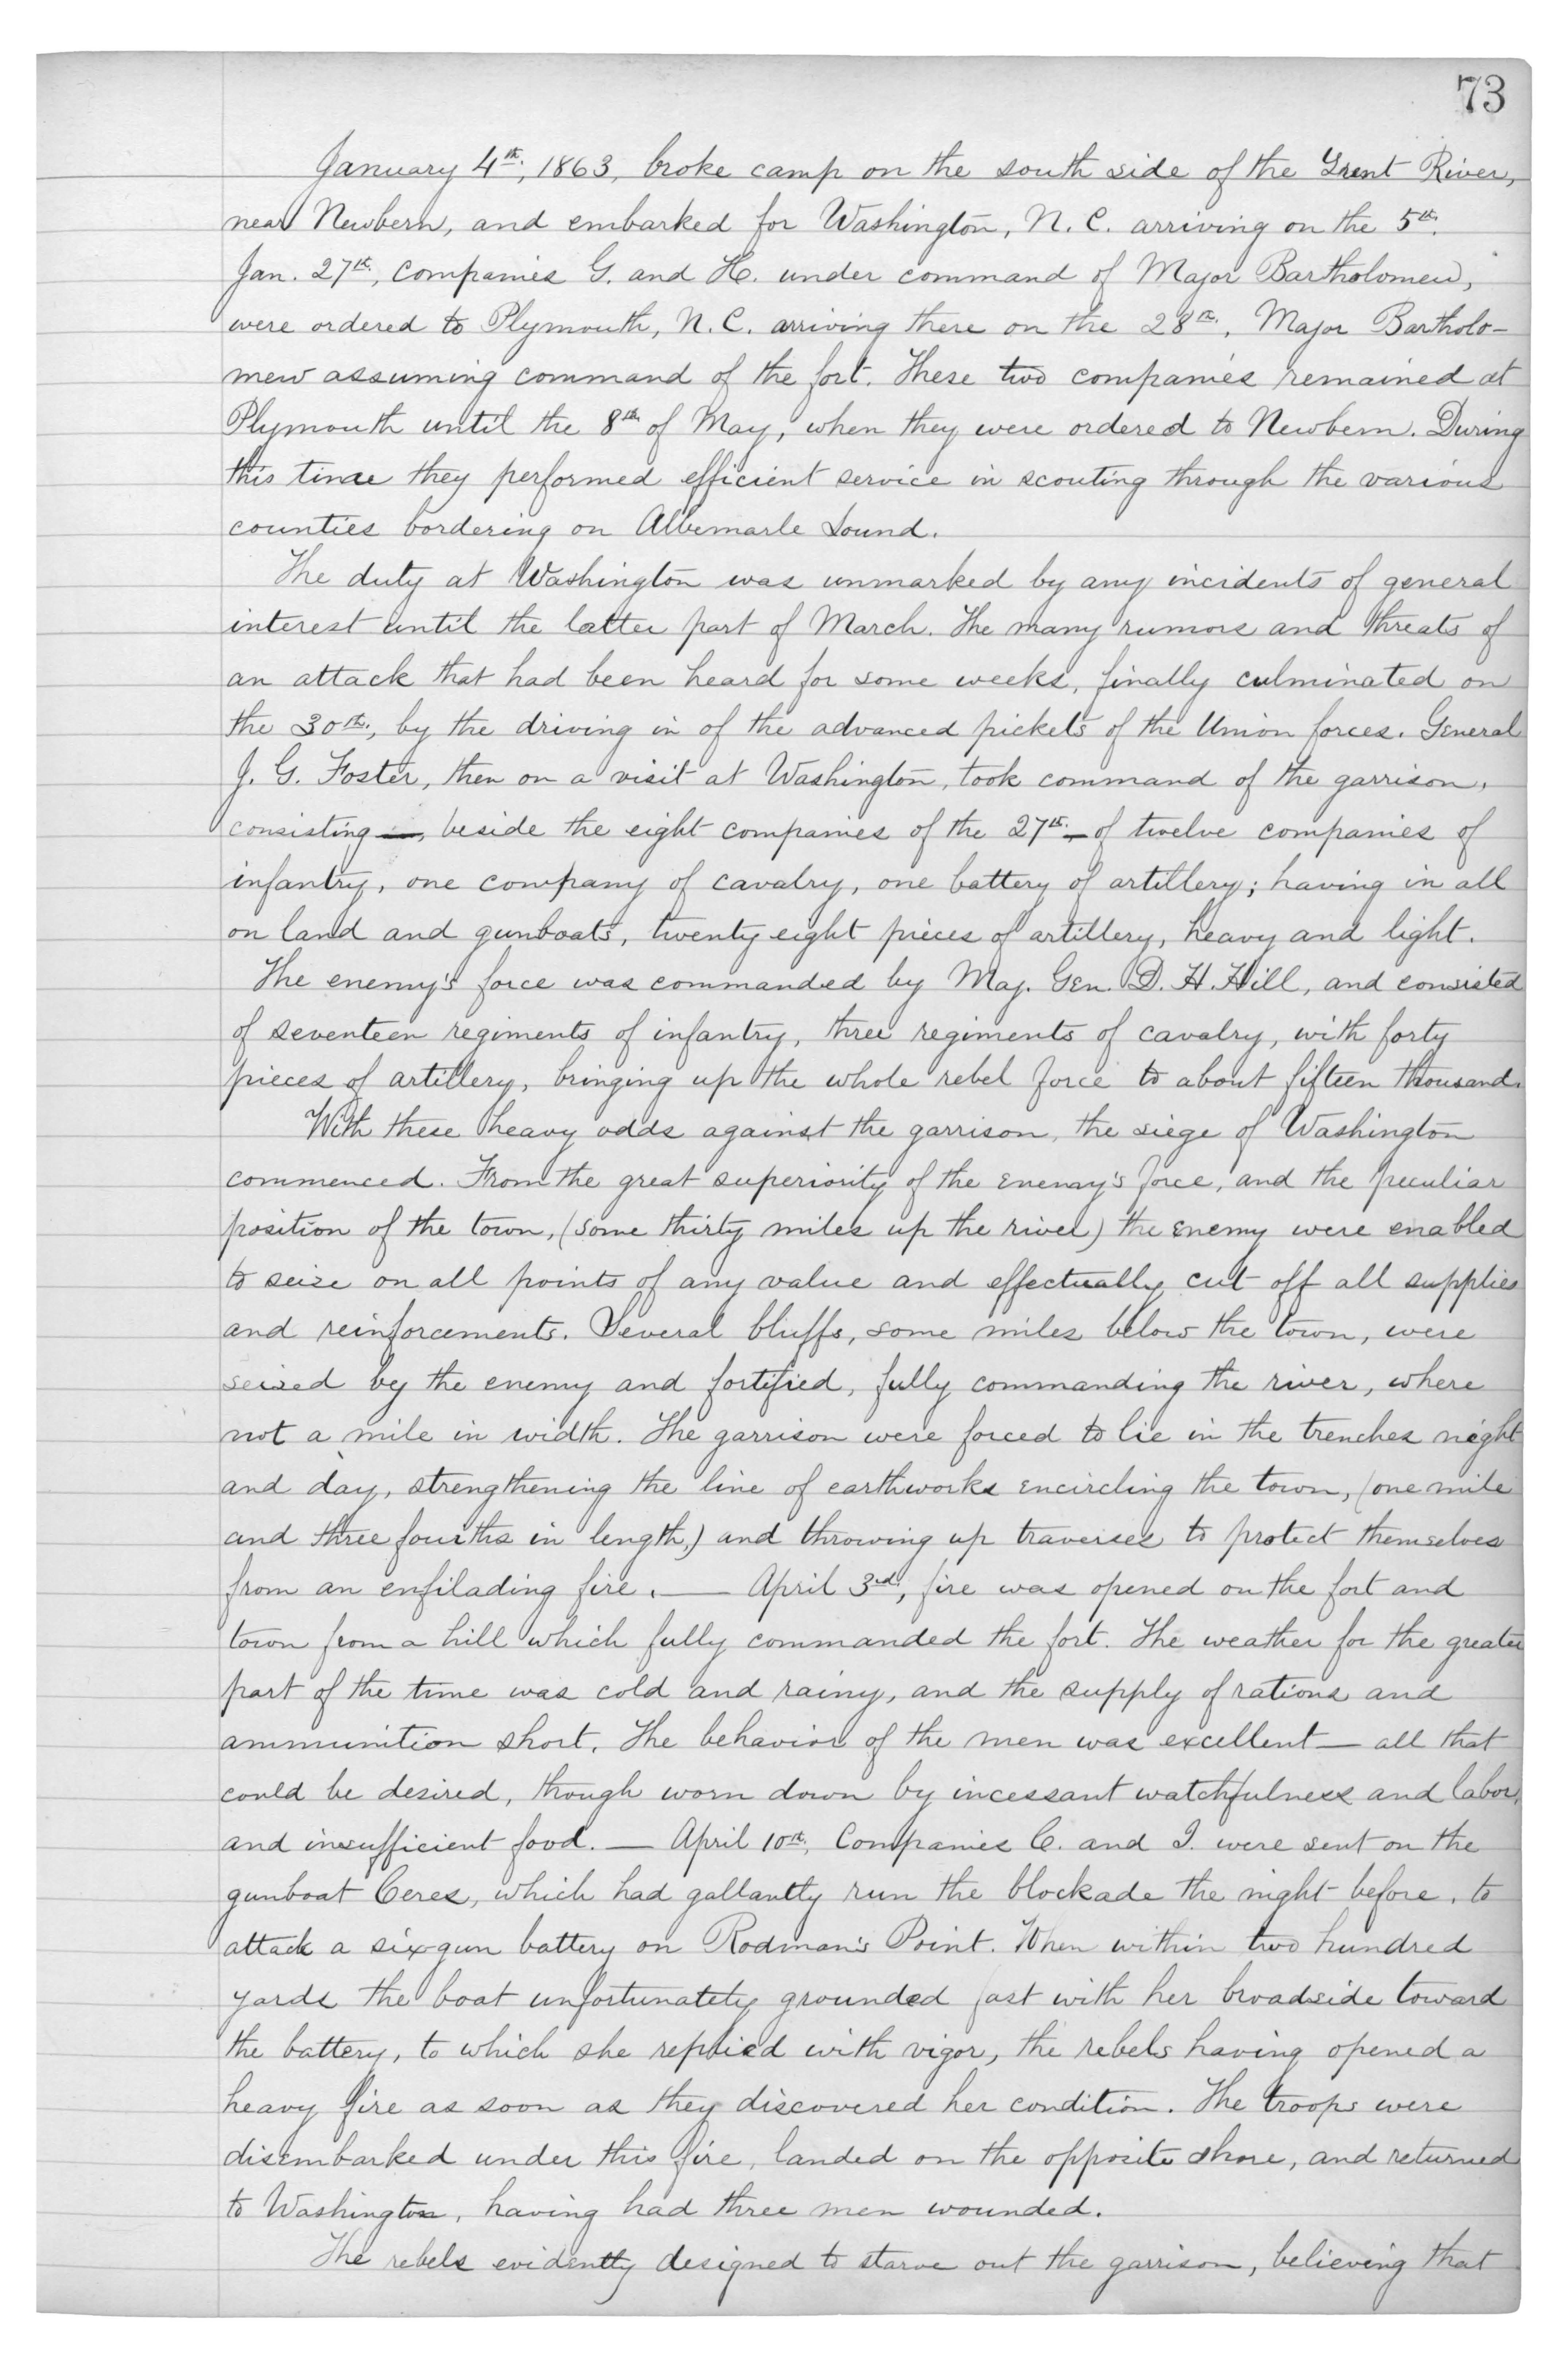 73
January 4th, 1863, broke camp on the south side of the Trent River,
near Newbern, and embarked for Washington, N.C. arriving on the 5th.
Jan. 27th, Companies G. and H. under command of Major Bartholomew,
were ordered to Plymouth, N.C. arriving there on the 28th, Major Bartholo-
mew assuming command of the fort. These two companies remained at
Plymouth until the 8th of May, when they were ordered to Newbern. During
this time they performed efficient service in scouting through the various
counties bordering on Albemarle Sound.
The duty at Washington was unmarked by any incidents of general
interest until the latter part of March. The many rumors and threats of
an attack that had been heard for some weeks, finally culminated on
the 30th, by the driving in of the advanced pickets of the Union forces. General
J. G. Foster, then on a visit at Washington, took command of the garrison,
consisting —, beside the eight companies of the 27th — of twelve companies of
infantry, one company of cavalry, one battery of artillery; having in all
on land and gunboats, twenty eight pieces of artillery, heavy and light.
The enemy's force was commanded by Maj. Gen. D. H. Hill, and consisted
of seventeen regiments of infantry, three regiments of cavalry, with forty
pieces of artillery, bringing up the whole rebel force to about fifteen thousand.
With these heavy odds against the garrison, the siege of Washington
commenced. From the great superiority of the enemy's force, and the peculiar
position of the town, (some thirty miles up the river) the enemy were enabled
to seize on all points of any value and effectually cut off all supplies
and reinforcements. Several bluffs, some miles below the town, were
seized by the enemy and fortified, fully commanding the river, where
not a mile in width. The garrison were forced to lie in the trenches night
and day, strengthening the line of earthworks encircling the town, (one mile
and three fourths in length,) and throwing up traverses to protect themselves
from an enfilading fire. — April 3rd, fire was opened on the fort and
town from a hill which fully commanded the fort. The weather for the greater
part of the time was cold and rainy, and the supply of rations and
ammunition short. The behavior of the men was excellent — all that
could be desired, though worn down by incessant watchfulness and labor,
and insufficient food. — April 10th, Companies C. and I. were sent on the
gunboat Ceres, which had gallantly run the blockade the night before, to
attack a six-gun battery on Rodman's Point. When within two hundred
yards the boat unfortunately grounded fast with her broadside toward
the battery, to which she replied with vigor, the rebels having opened a
heavy fire as soon as they discovered her condition. The troops were
disembarked under this fire, landed on the opposite shore, and returned
to Washington, having had three men wounded.
The rebels evidently designed to starve out the garrison, believing that